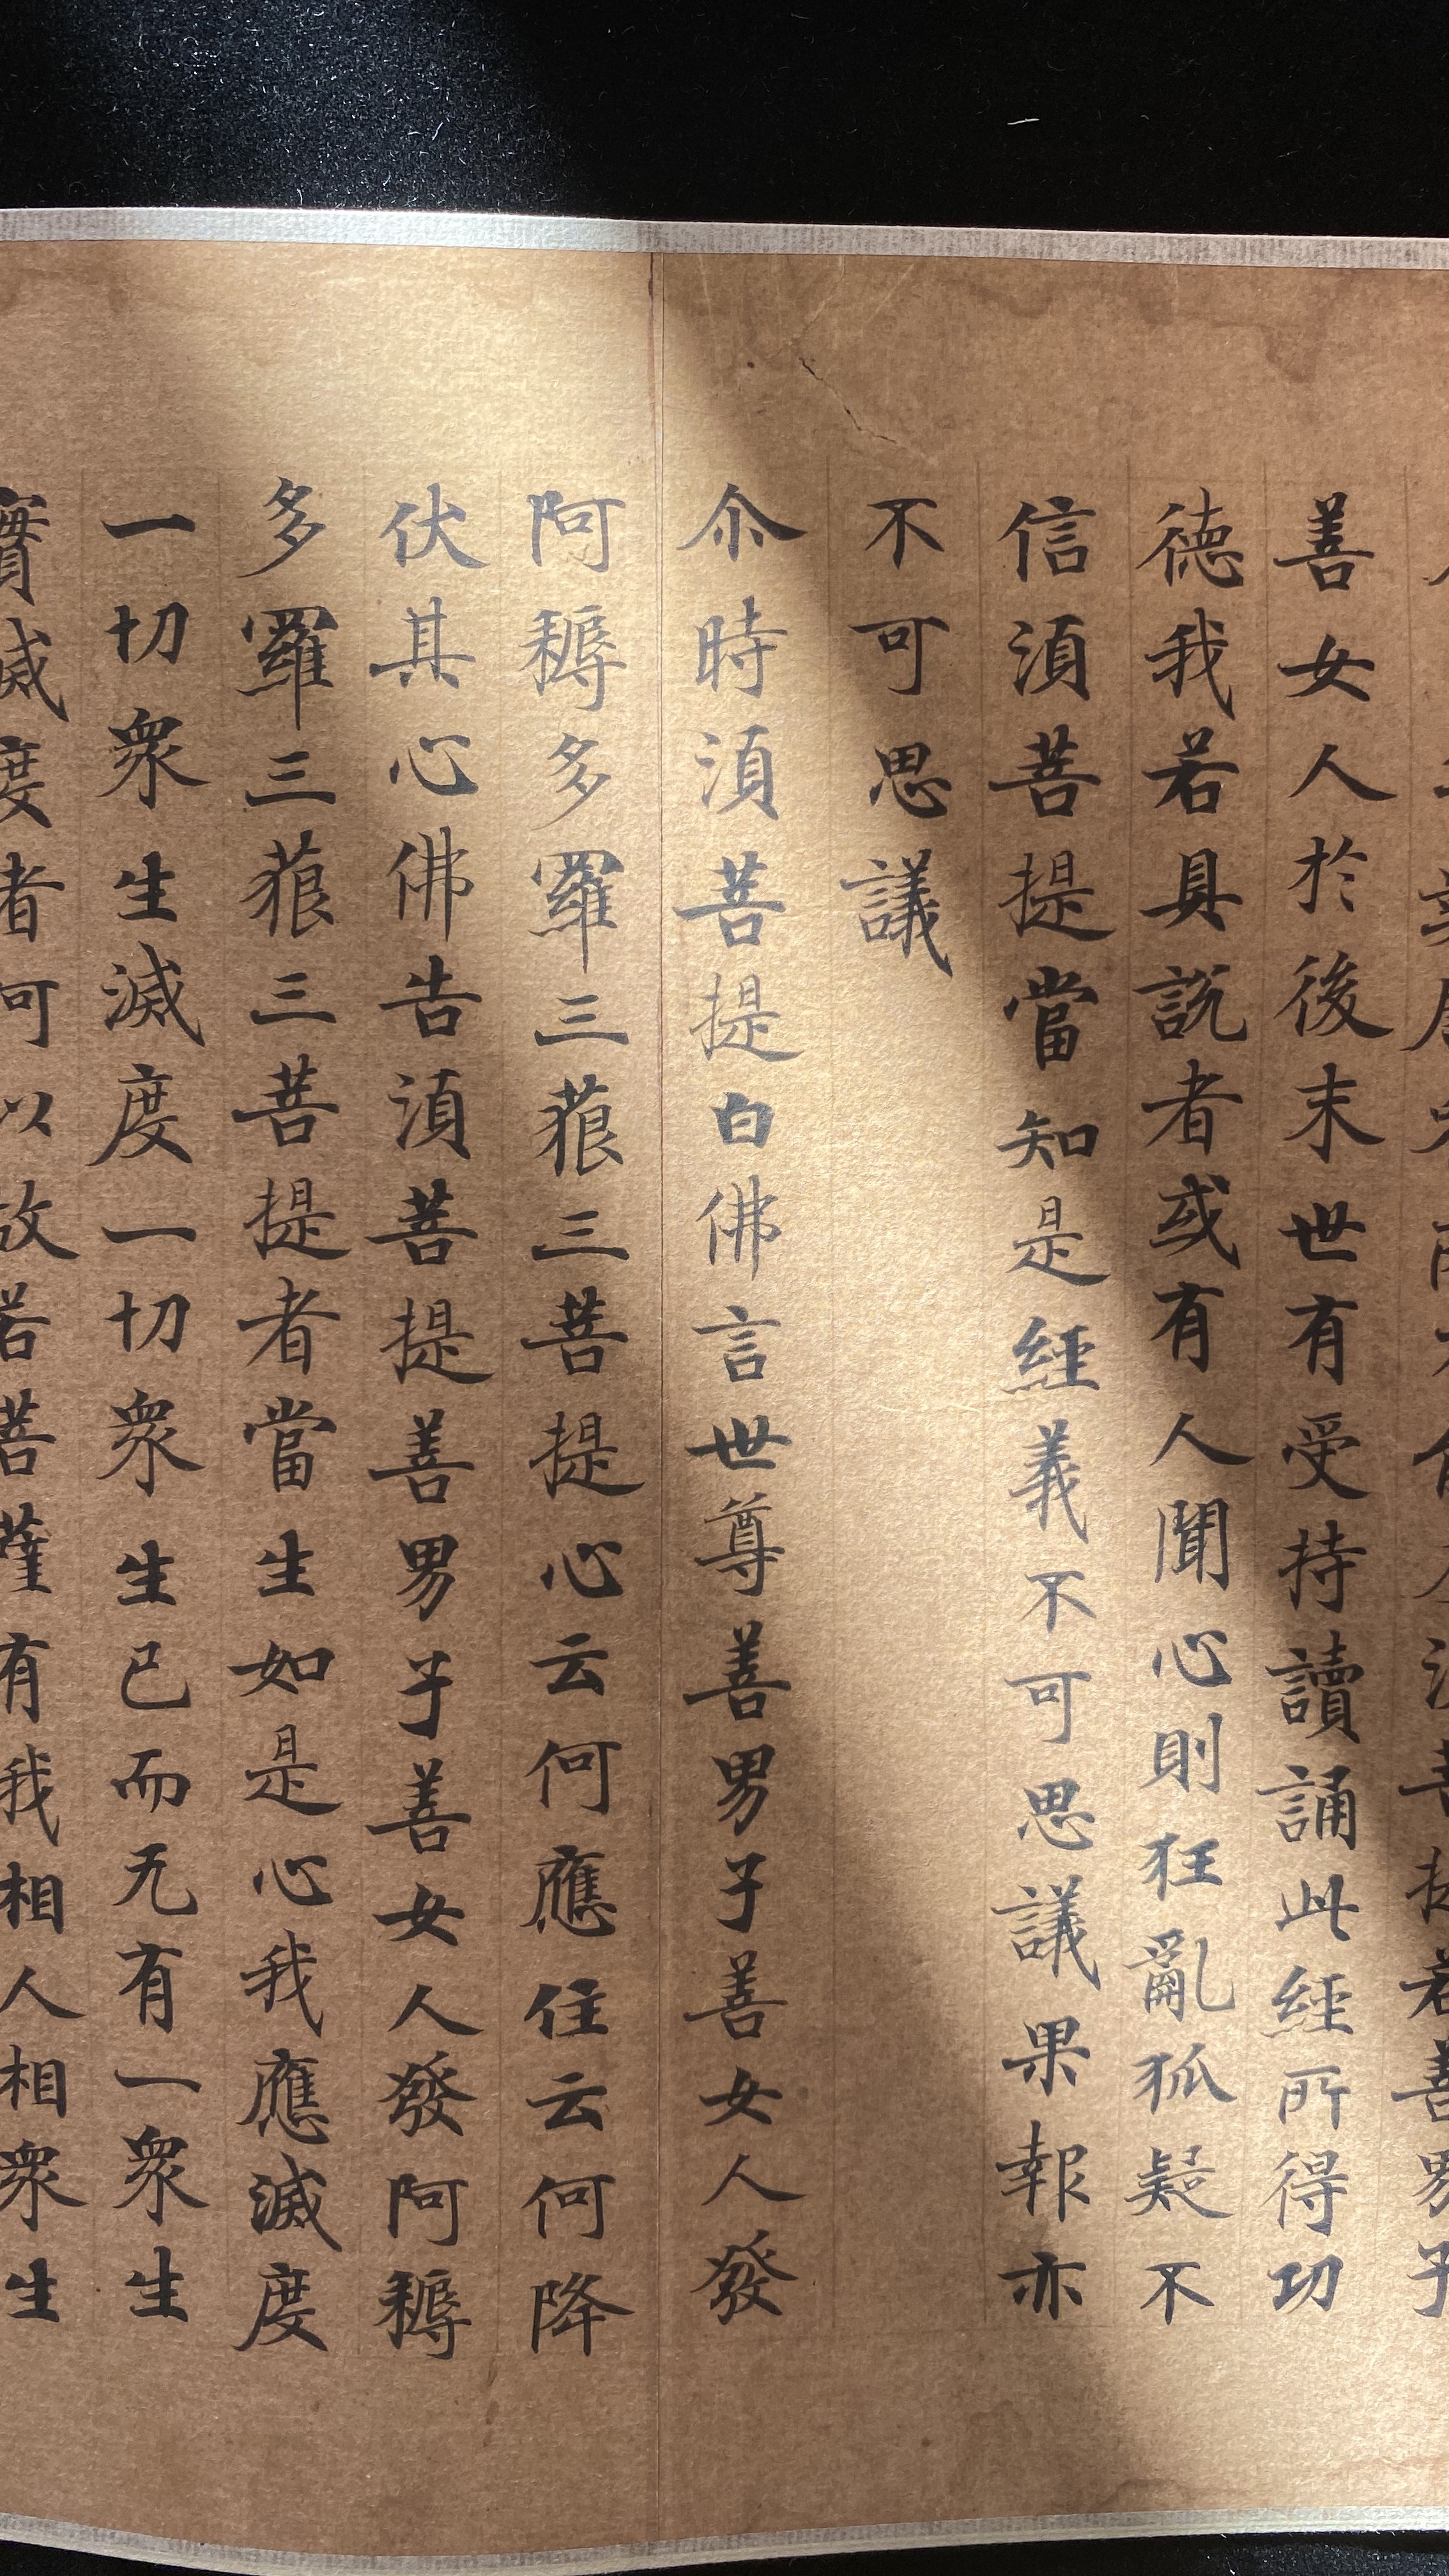 菩提若善男子
善女人於後末世有受持讀誦此經所得功
德我若具説者或有人聞心則狂亂狐疑不
信湏菩提當知是經義不可思議果報亦
不可思議
尒時湏菩提白佛言世尊善男子善女人發
阿耨多羅三藐三菩提心云何應住云何降
伏其心佛告湏菩提善男子善女人發阿耨
多羅三藐三菩提者當生如是心我應滅度
一切衆生滅度一切衆生已而无有一衆生
實滅度者何以故若菩薩有我相人相衆生